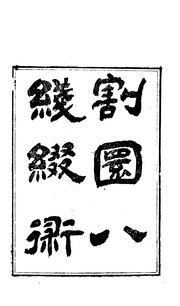 割圜八
綫綴術